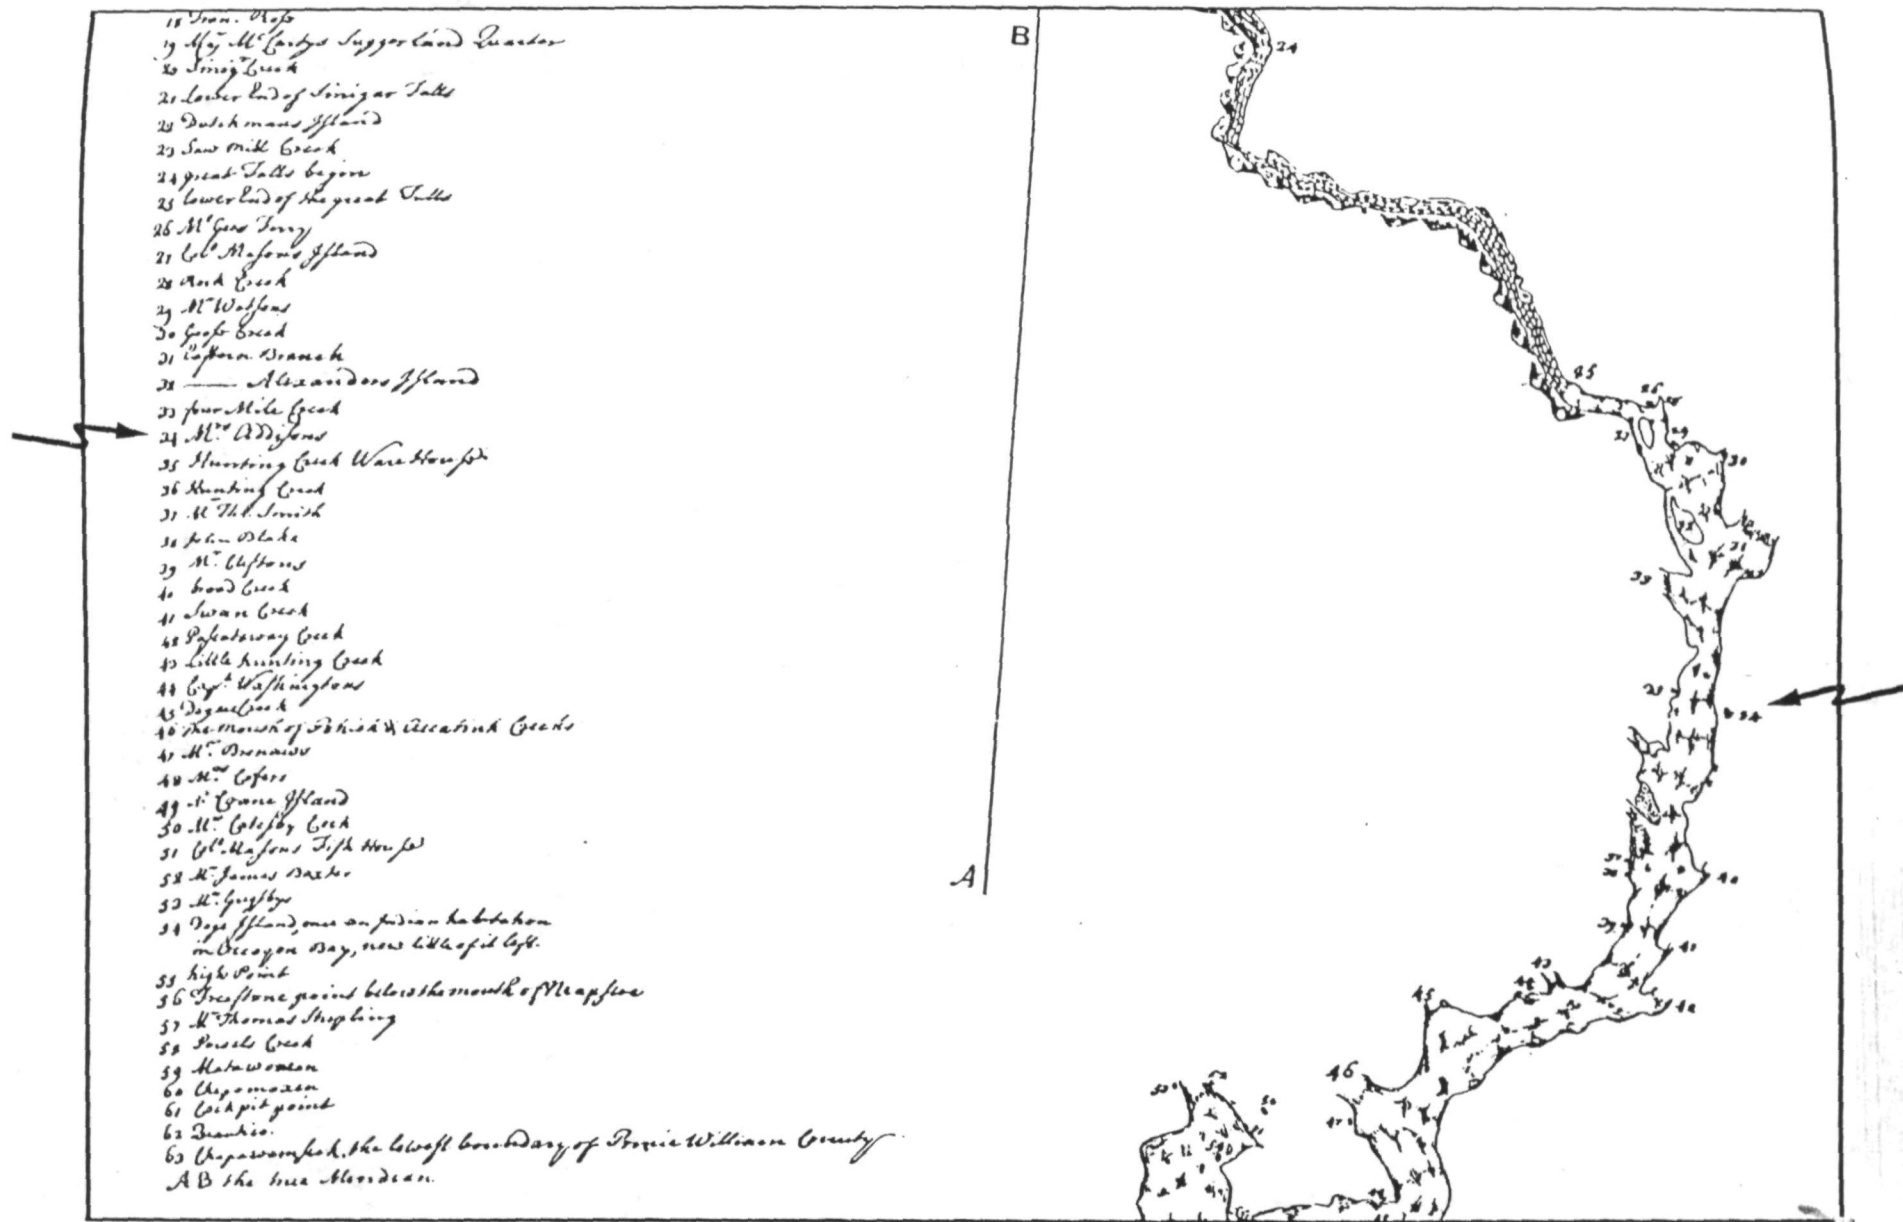 18 Fran. Ross
19 Maj Mc Cartys Suggerland Quarter
20 Sinigr Creek
21 lower End of Sinigar Falls
22 Dutchmans Island
23 Saw Mill Creek
24 great Falls begin
25 lower End of the great Falls
26 Mr Gees Ferry
27 Colo Masons Island
28 Rock Creek
29 Mr Watsons
30 Goose Creek
31 Eastern Branch
32 —— Alexanders Island
33 four Mile Creek
34 Mrs Addisons
35 Hunting Creek Ware House
36 Hunting Creek
37 Mr Thl. Smith
38 John Blake
39 Mr. Cliftons
40 broad Creek
41 Swan Creek
42 Pascataway Creek
43 Little hunting Creek
44 Capt. Washingtons
45 Dogue Creek
46 the mouth of Pohick & Accatink Creeks
47 Mr. Bronaws
48 Mrs Cofers
49 Crane Island
50 Mr. Catesby Cock
51 Colo. Masons Fish House
52 Mr. James Baxter
53 Mr. Grigsbys
54 Dogs Island, once an Indian habitation
in Occoqon Bay, now little of it left.
55 high Point
56 Freestone point below the mouth of Neapsco
57 Mr Thomas Stripling
58 Persels Creek
59 Matawoman
60 Chapomoxen
61 Cockpit point
62
63 Chapawamsick, the lowest boundary of Prince William County
A B the true Meridian.
B
A
24
25
26
28
27
29
30
32
31
33
35
34
37
38
40
39
41
43
44
42
45
46
47
53
52
50
54
48